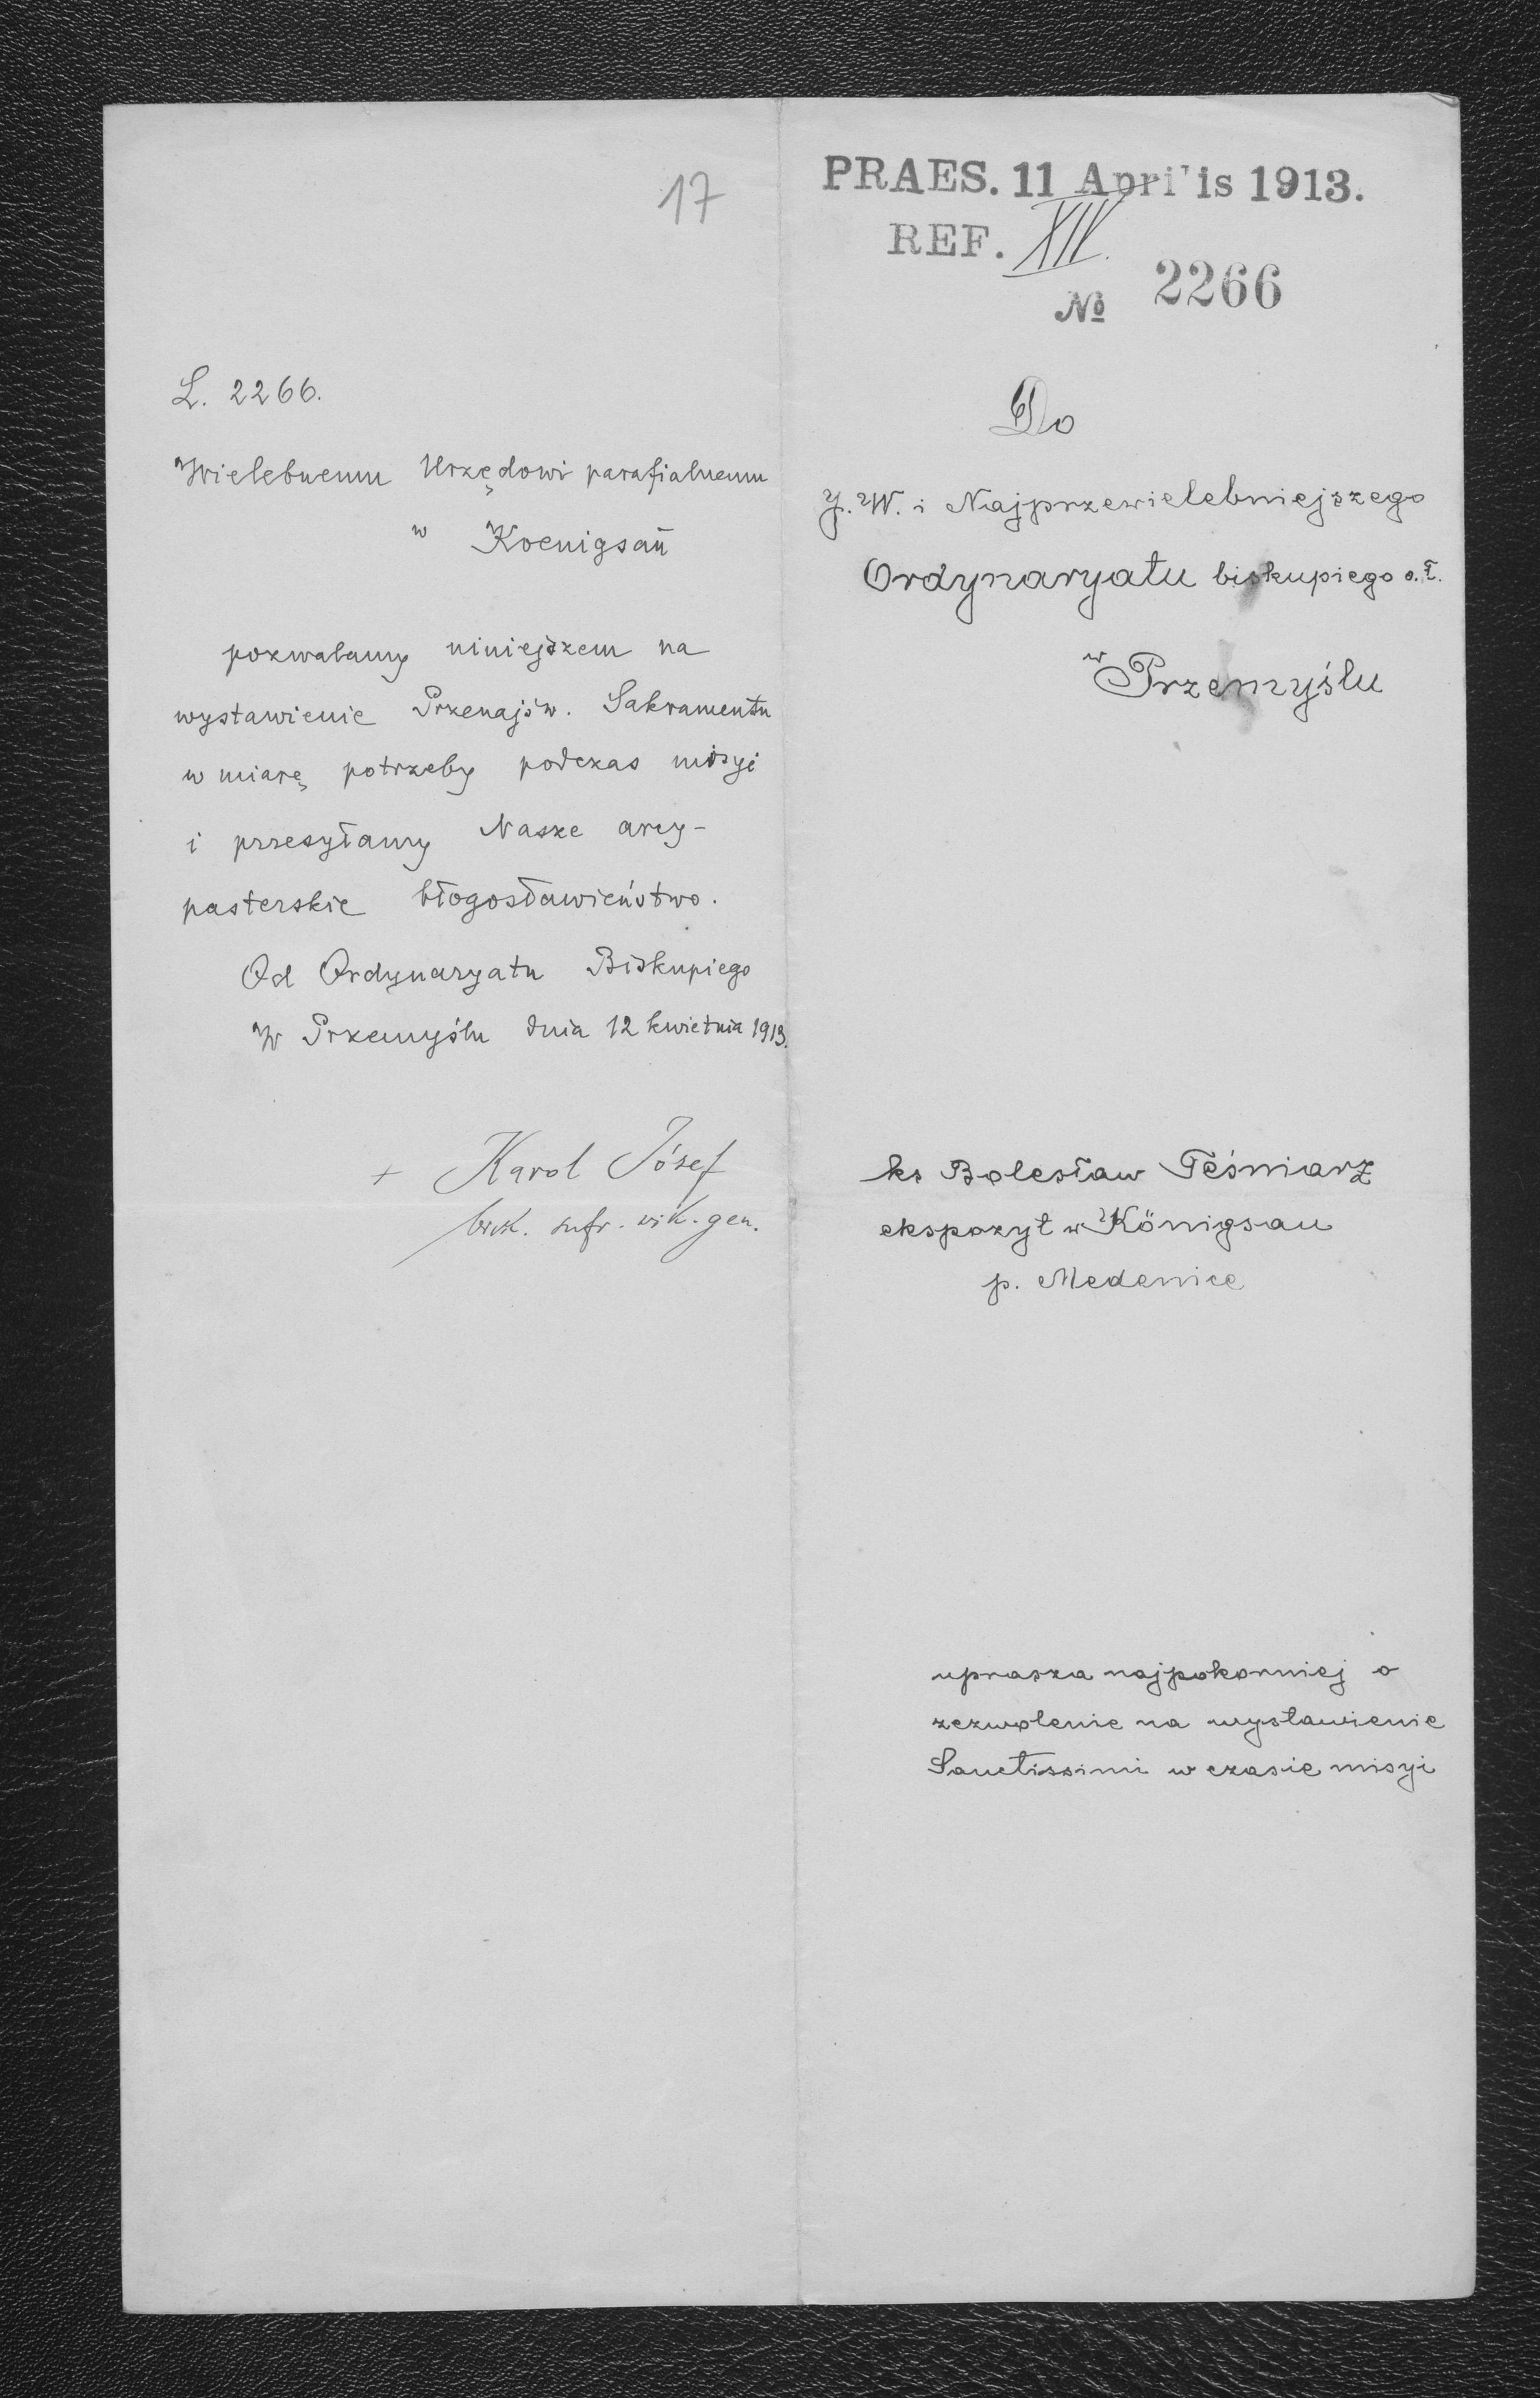 17
L. 2266.
Wielebnemu Urzędowi parafialnemu
w Koenigsaū
pozwalamy niniejszem na
wystawienie Przenajśw. Sakramentu
w miarę potrzeby podczas misyi
i przesyłamy Nasze arcy-
pasterskie błogosławieństwo.
Od Ordynaryatu Biskupiego
W Przemyślu dnia 12 kwietnia 1913.
+ Karol Józef
bisk. sufr. wik. gen.
PRAES. 11 Aprilis 1913.
REF. XIV.
№ 2266
Do
J. W. i Najprzewielebniejszego
Ordynaryatu biskupiego o. ł.
w Przemyślu
ks Bolesław Teśniarz
ekspozyt w Königsau
p. Medenice
uprasza najpokorniej o
zezwolenie na wystawienie
Sanctissimi w czasie misyi